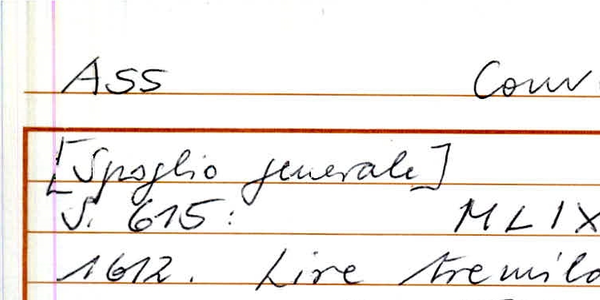 ASS Conv
[Spoglio generale]
S. 615: MLIX
1612. Lire tremila